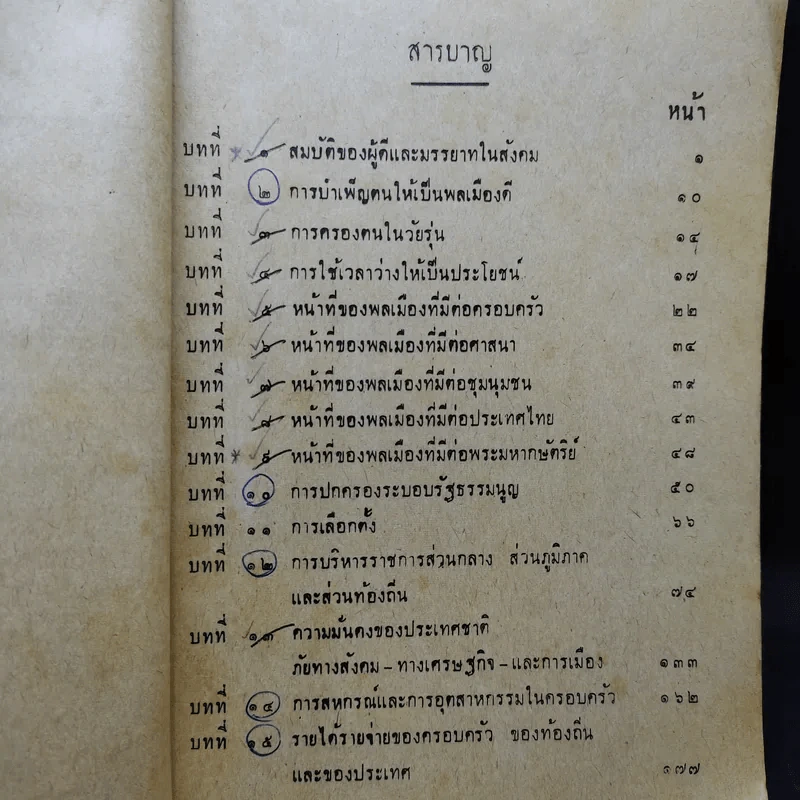 สารบาญ
หน้า
บทที่ ๑ สมบัติของผู้ดีและมรรยาทในสังคม ๑
บทที่ ๒ การบำเพ็ญตนให้เป็นพลเมืองดี ๑๐
บทที่ ๓ การครองตนในวัยรุ่น ๑๔
บทที่ ๔ การใช้เวลาว่างให้เป็นประโยชน์ ๑๗
บทที่ ๕ หน้าที่ของพลเมืองที่มีต่อครอบครัว ๒๒
บทที่ ๖ หน้าที่ของพลเมืองที่มีต่อศาสนา ๓๔
บทที่ ๗ หน้าที่ของพลเมืองที่มีต่อชุมนุมชน ๓๙
บทที่ ๘ หน้าที่ของพลเมืองที่มีต่อประเทศไทย ๔๓
บทที่ ๙ หน้าที่ของพลเมืองที่มีต่อพระมหากษัตริย์ ๔๘
บทที่ ๑๐ การปกครองระบอบรัฐธรรมนูญ ๕๐
บทที่ ๑๑ การเลือกตั้ง ๖๖
บทที่ ๑๒ การบริหารราชการส่วนกลาง ส่วนภูมิภาค
และส่วนท้องถิ่น ๗๔
บทที่ ๑๓ ความมั่นคงของประเทศชาติ
ภัยทางสังคม – ทางเศรษฐกิจ – และการเมือง ๑๓๓
บทที่ ๑๔ การสหกรณ์และการอุตสาหกรรมในครอบครัว ๑๖๒
บทที่ ๑๕ รายได้รายจ่ายของครอบครัว ของท้องถิ่น
และของประเทศ ๑๗๗